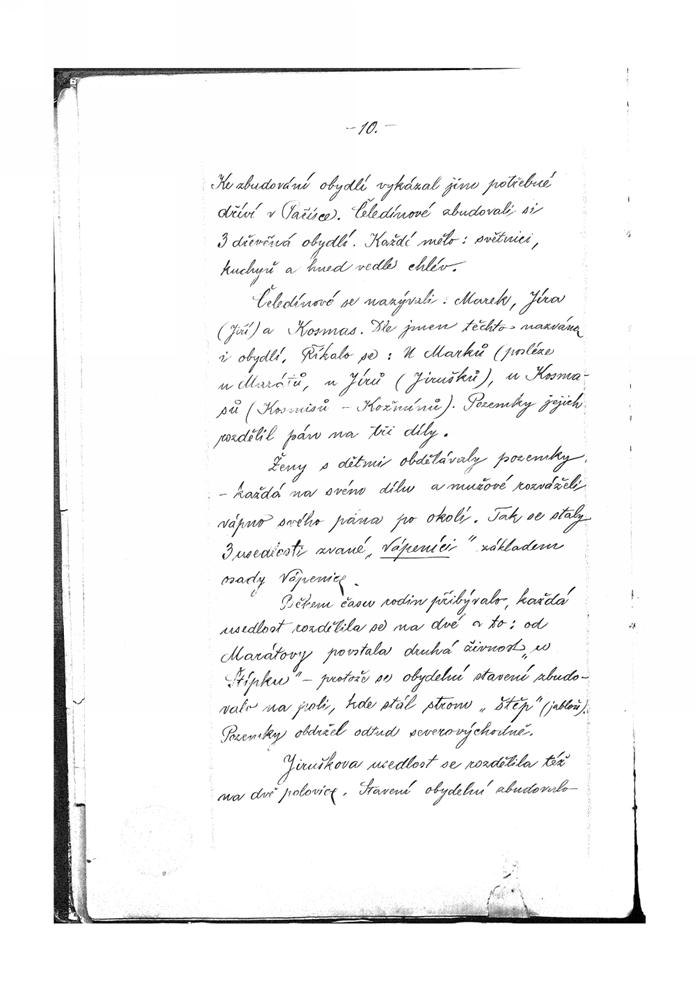 - 10. -
Ke zbudování obydlí vykázal jim potřebné
dříví v Pařísce). Čeledínové zbudovali si
3 dřevěná obydlí. Každí mělo: světnici,
kuchyň a hned vedle chlév.
Čeledínové se nazývali: Marek, Jíra
(Jiří) a Kosmas. Dle jmen těchto nazvána
i obydlí. Říkalo se: U Marků (posléze
u Marátů, u Jírů (Jirušků), u Kosma-
sů (Kosmisů - ). Pozemky jejich
rozdělil pán na tři díly.
Ženy s dětmi obdělávaly pozemky
- každá na svém dílu a mužové rozváželi
vápno svého pána po okolí. Tak se staly
3 usedlosti zvané „Vápeníci" základem
osady Vápenice.
Během času rodin přibývalo, každá
usedlost rozdělila se na dvě a to: od
Marátovy povstala druhá živnost „u
Štípku" - protože se obydelní stavení zbudo-
valo na poli, kde stál strom „štěp" (jabloň).
Pozemky obdržel odtud severovýchodně.
Jiruškova usedlost se rozdělila též
na dvě polovice. Stavení obydelní zbudovalo